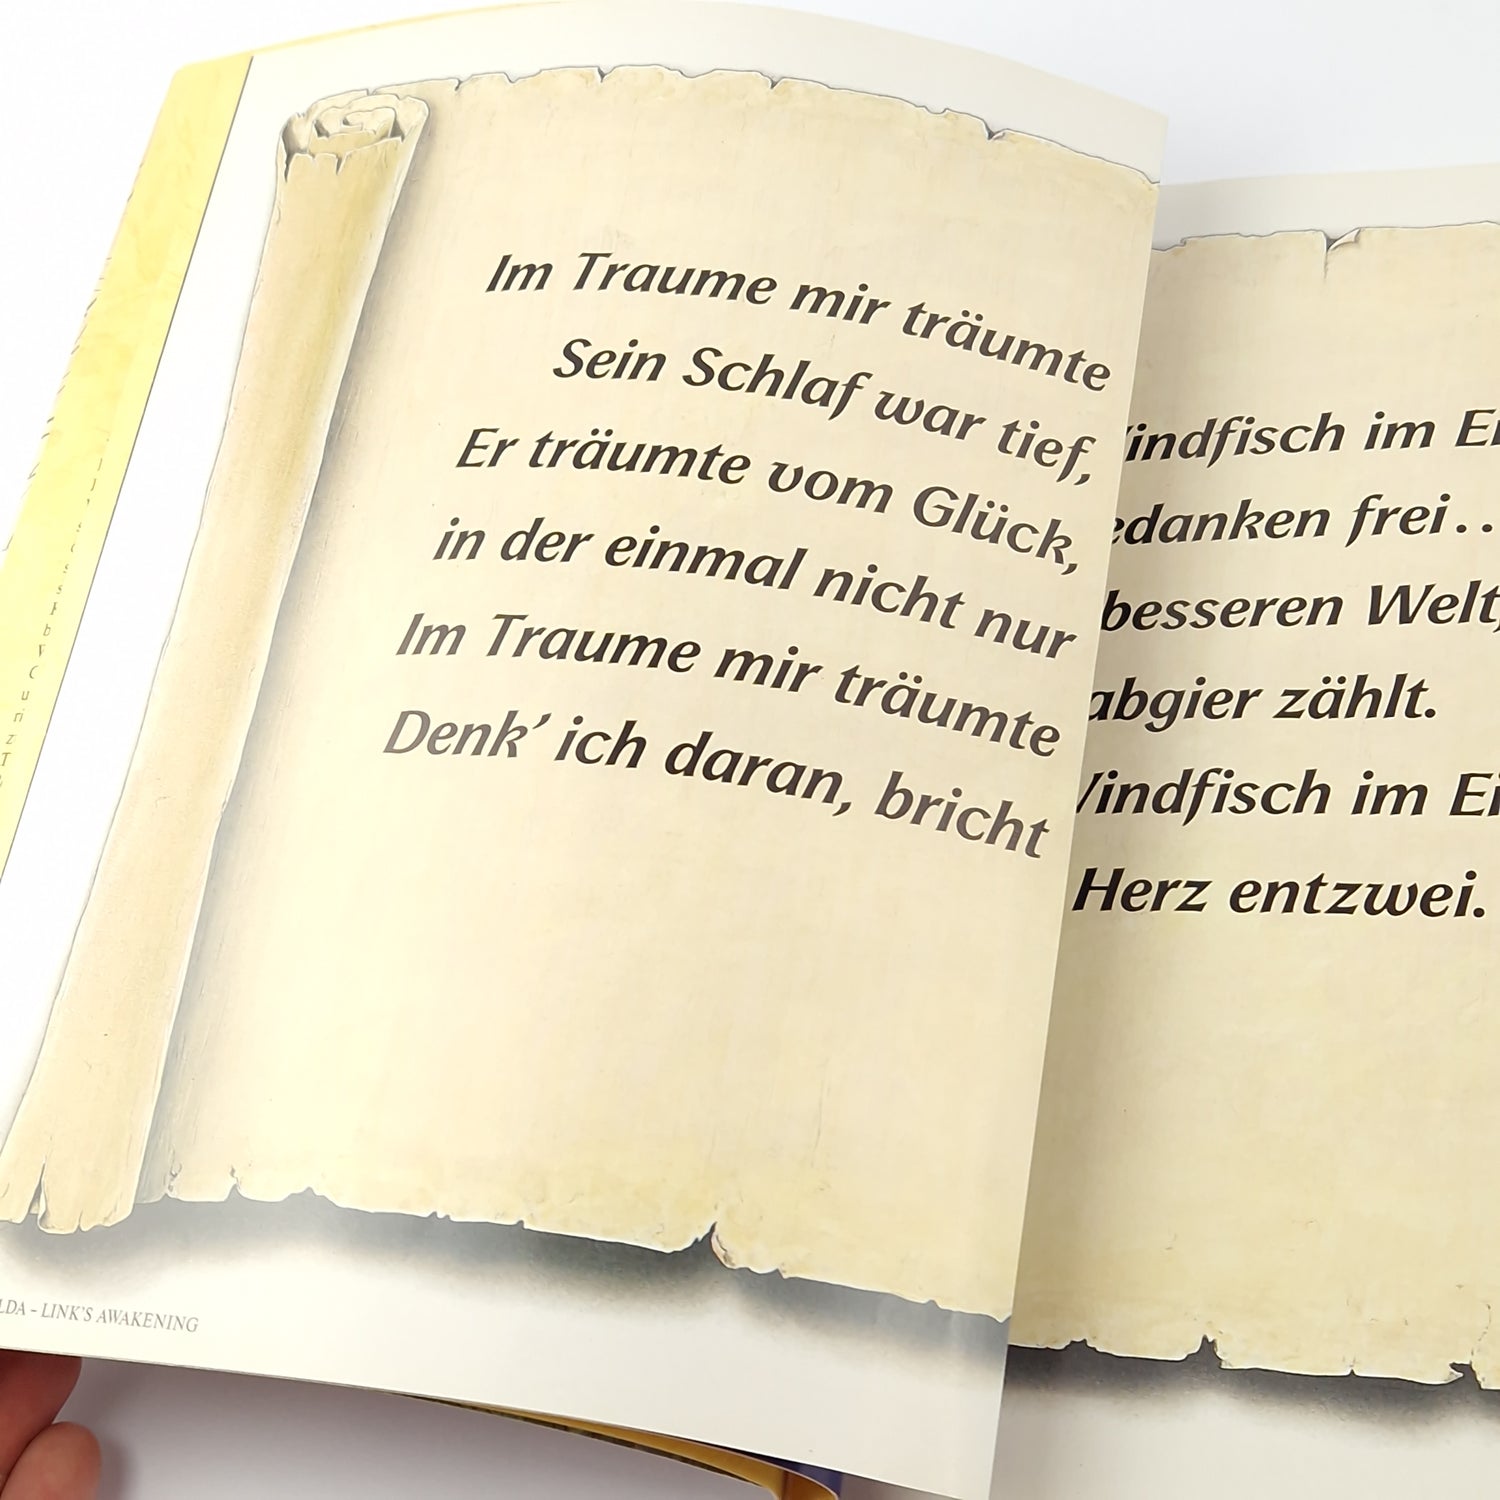 Im Traume mir träumte
Sein Schlaf war tief,
Er träumte vom Glück,
in der einmal nicht nur
Im Traume mir träumte
Denk' ich daran, bricht
LINK'S AWAKENING
indfisch im
danken frei..
besseren Welt,
abgier zählt.
indfisch im
Herz entzwei.